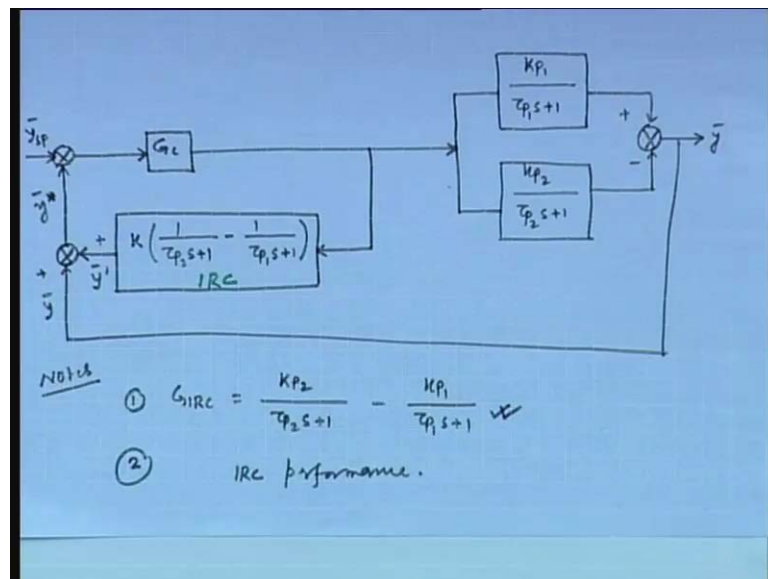 Kp₁
τp₁s+1
+
ȳsp
Gc
ȳ
-
Kp₂
τp₂s+1
ȳ*
K(1/τp₂s+1 - 1/τp₁s+1)
IRC
+
ȳ'
+
ȳ
Notes
① GIRC = Kp₂/τp₂s+1 - Kp₁/τp₁s+1
② IRC prformance.